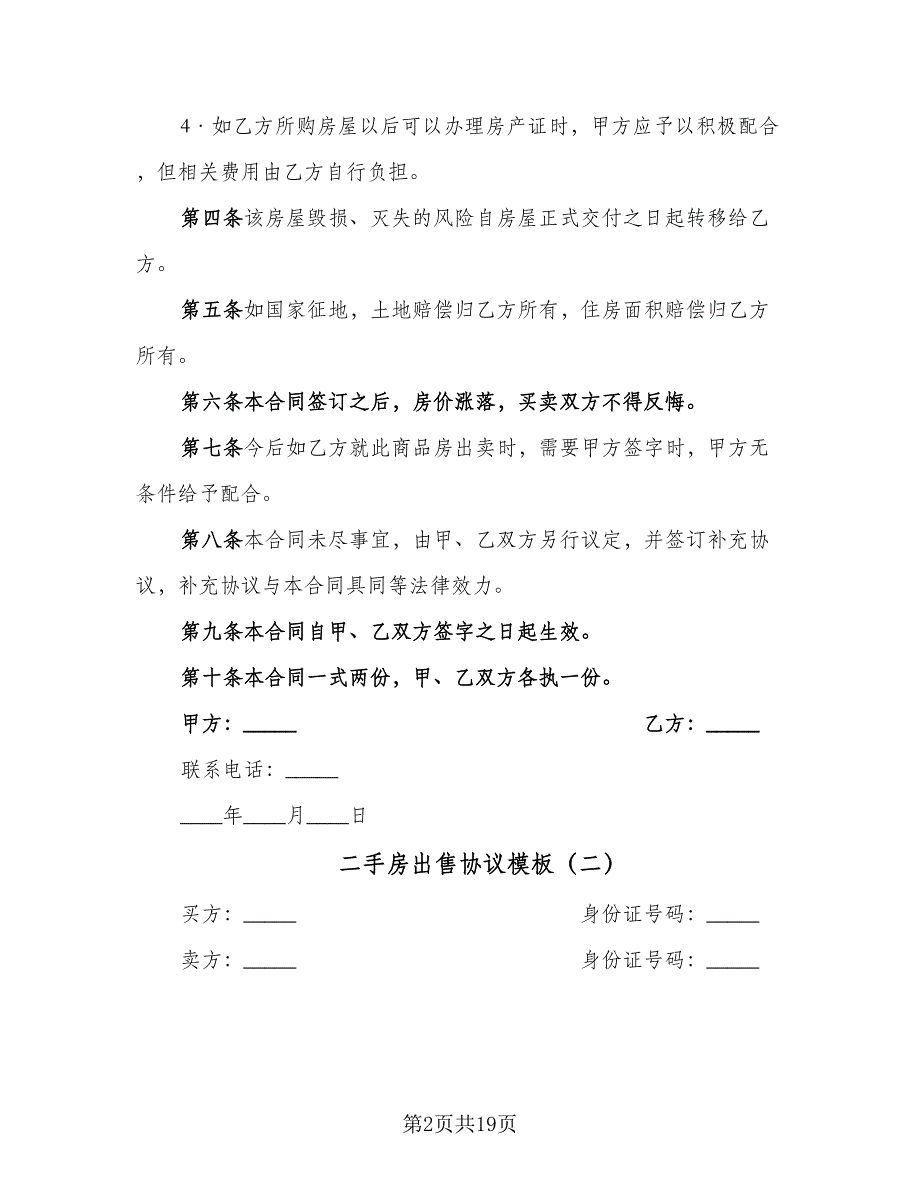 4·如乙方所购房屋以后可以办理房产证时，甲方应予以积极配合
，但相关费用由乙方自行负担。
第四条该房屋毁损、灭失的风险自房屋正式交付之日起转移给乙
方。
第五条如国家征地，土地赔偿归乙方所有，住房面积赔偿归乙方
所有。
第六条本合同签订之后，房价涨落，买卖双方不得反悔。
第七条今后如乙方就此商品房出卖时，需要甲方签字时，甲方无
条件给予配合。
第八条本合同未尽事宜，由甲、乙双方另行议定，并签订补充协
议，补充协议与本合同具同等法律效力。
第九条本合同自甲、乙双方签字之日起生效。
第十条本合同一式两份，甲、乙双方各执一份。
甲方：_____ 乙方：_____
联系电话：_____
____年____月____日
二手房出售协议模板（二）
买方：_____ 身份证号码：_____
卖方：_____ 身份证号码：_____
第2页共19页